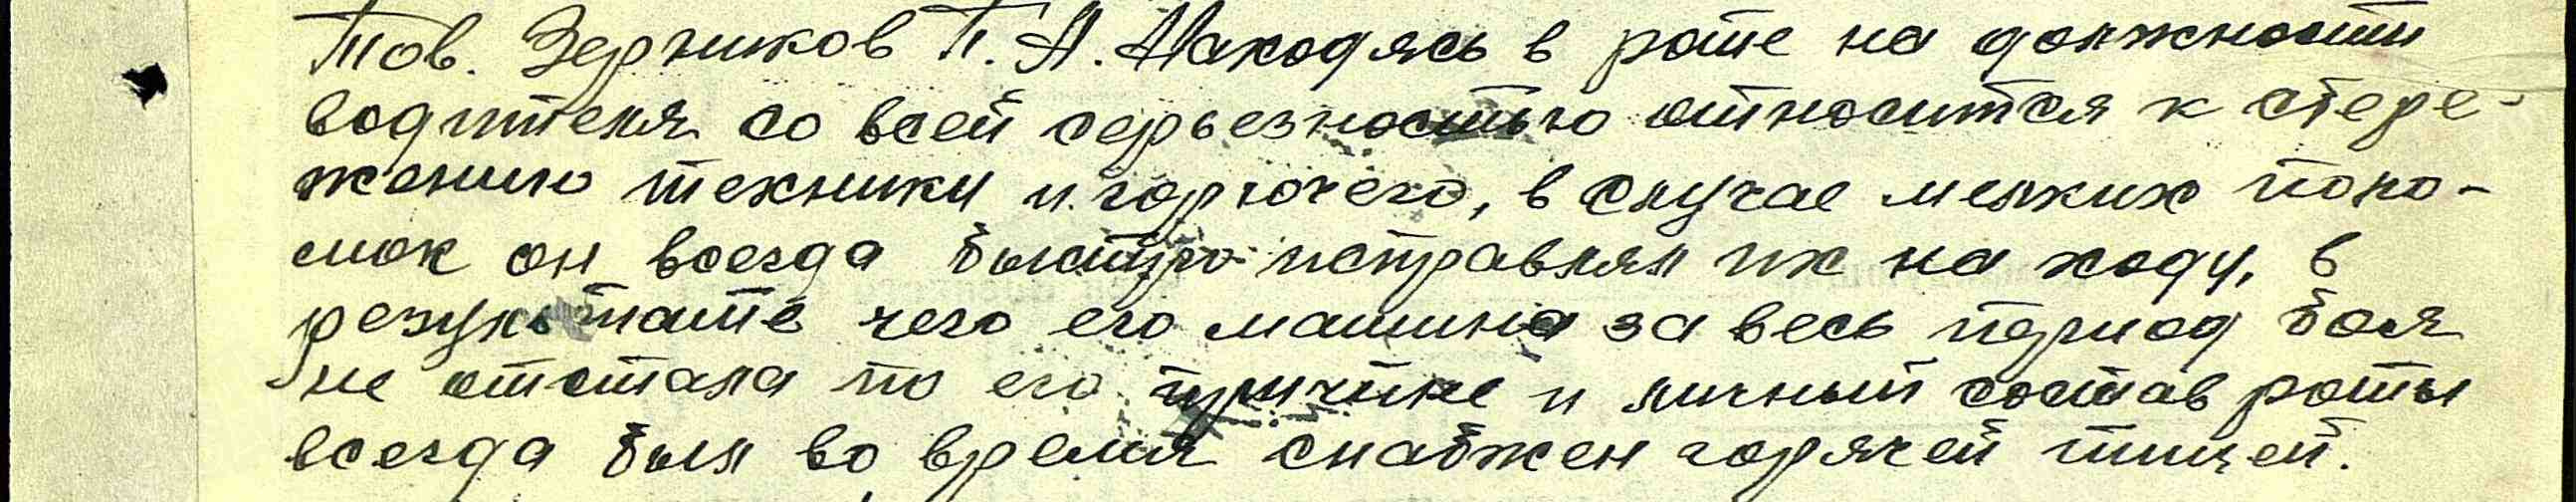 Тов. Зерников П. А. Находясь в роте на должности
водителя со всей серьезностью относится к сбере-
жению техники и горючего, в случае мелких поло-
мок он всегда быстро исправлял их на ходу, в
результате чего его машина за весь период боя
не отстала по его причине и личный состав роты
всегда был во время снабжен горячей пищей.